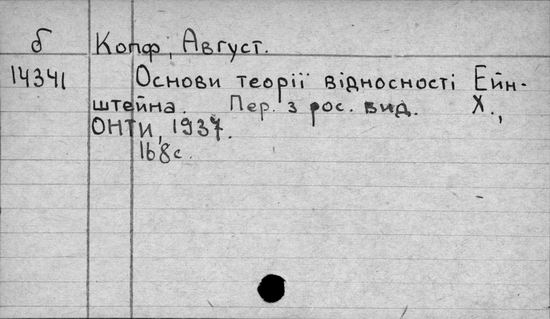 б Копф, Август.
14341 Основи теорії відносності Ейн-
штейна. Пер. з рос. вид. Х.,
ОНТИ, 1937.
168с.